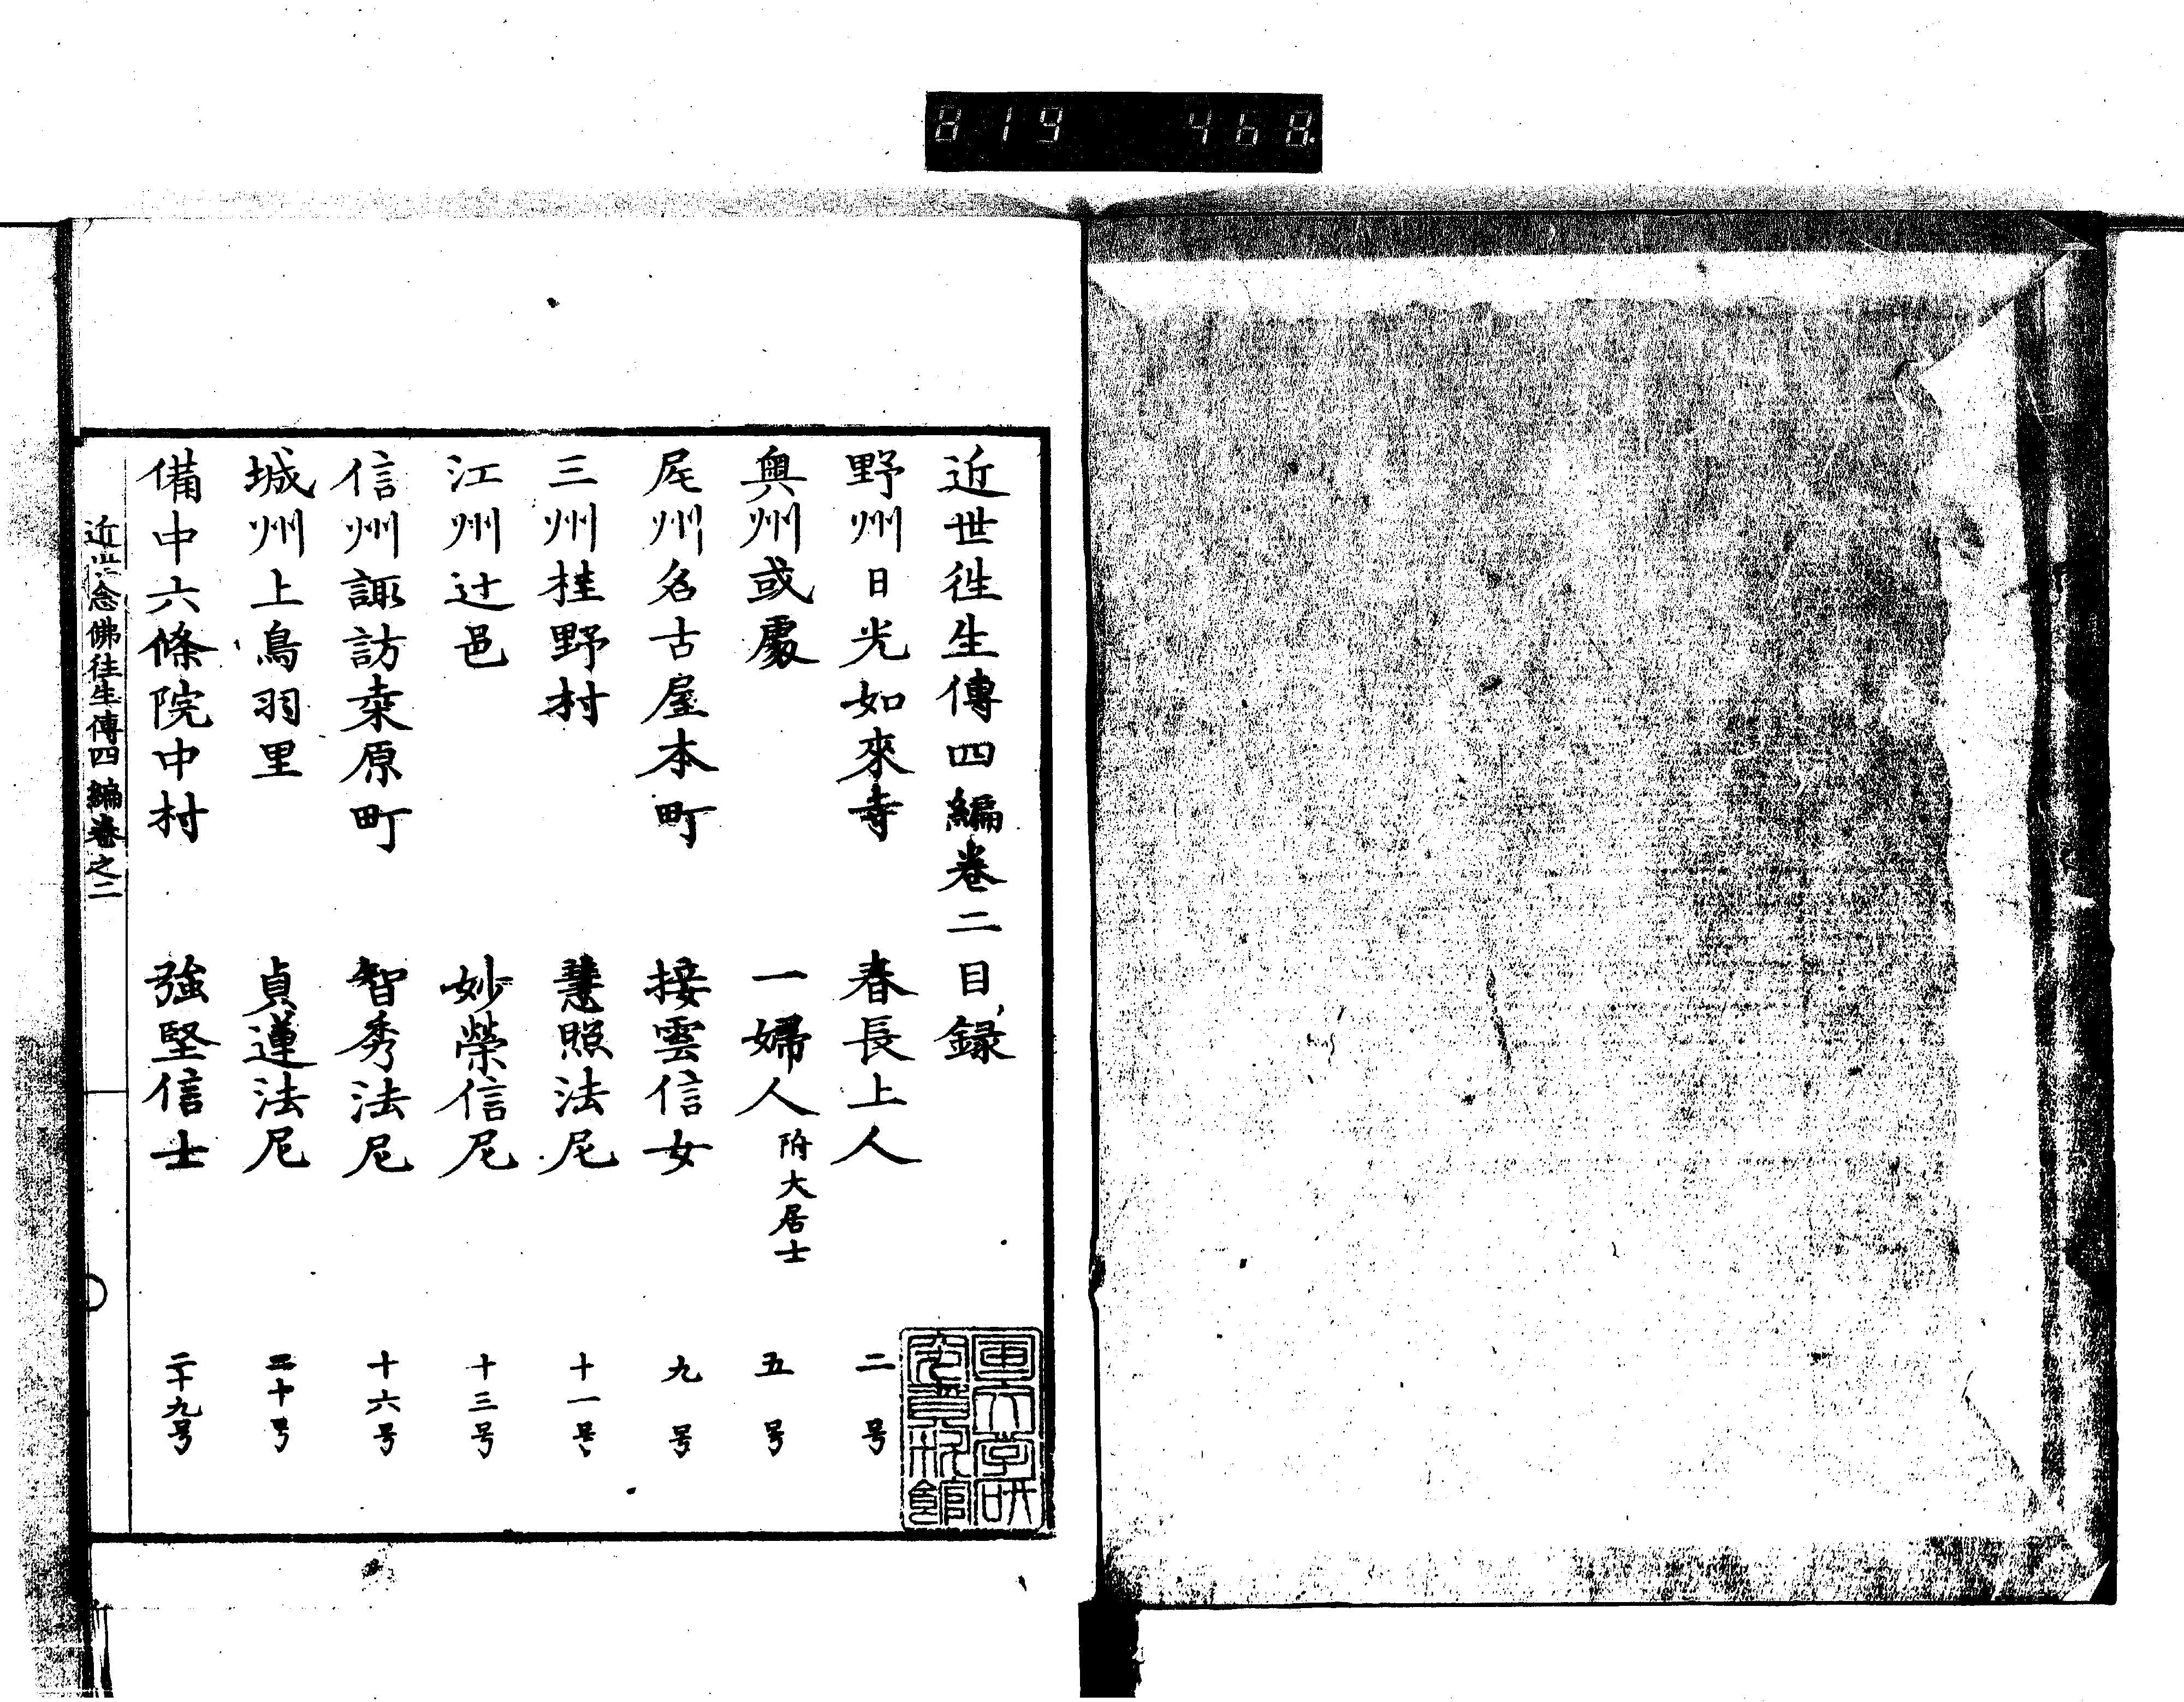 819 468
近世往生傳四編卷二目録
野州日光如來寺 春長上人 二号
奥州或處 一婦人 附大居士 五号
尾州名古屋本町 接雲信女 九号
三州桂野村 慧照法尼 十一号
江州辻邑 妙榮信尼 十三号
信州諏訪桒原町 智秀法尼 十六号
城州上鳥羽里 貞蓮法尼 二十号
備中六條院中村 強堅信士 二十九号
近世念佛往生傳四編卷之二